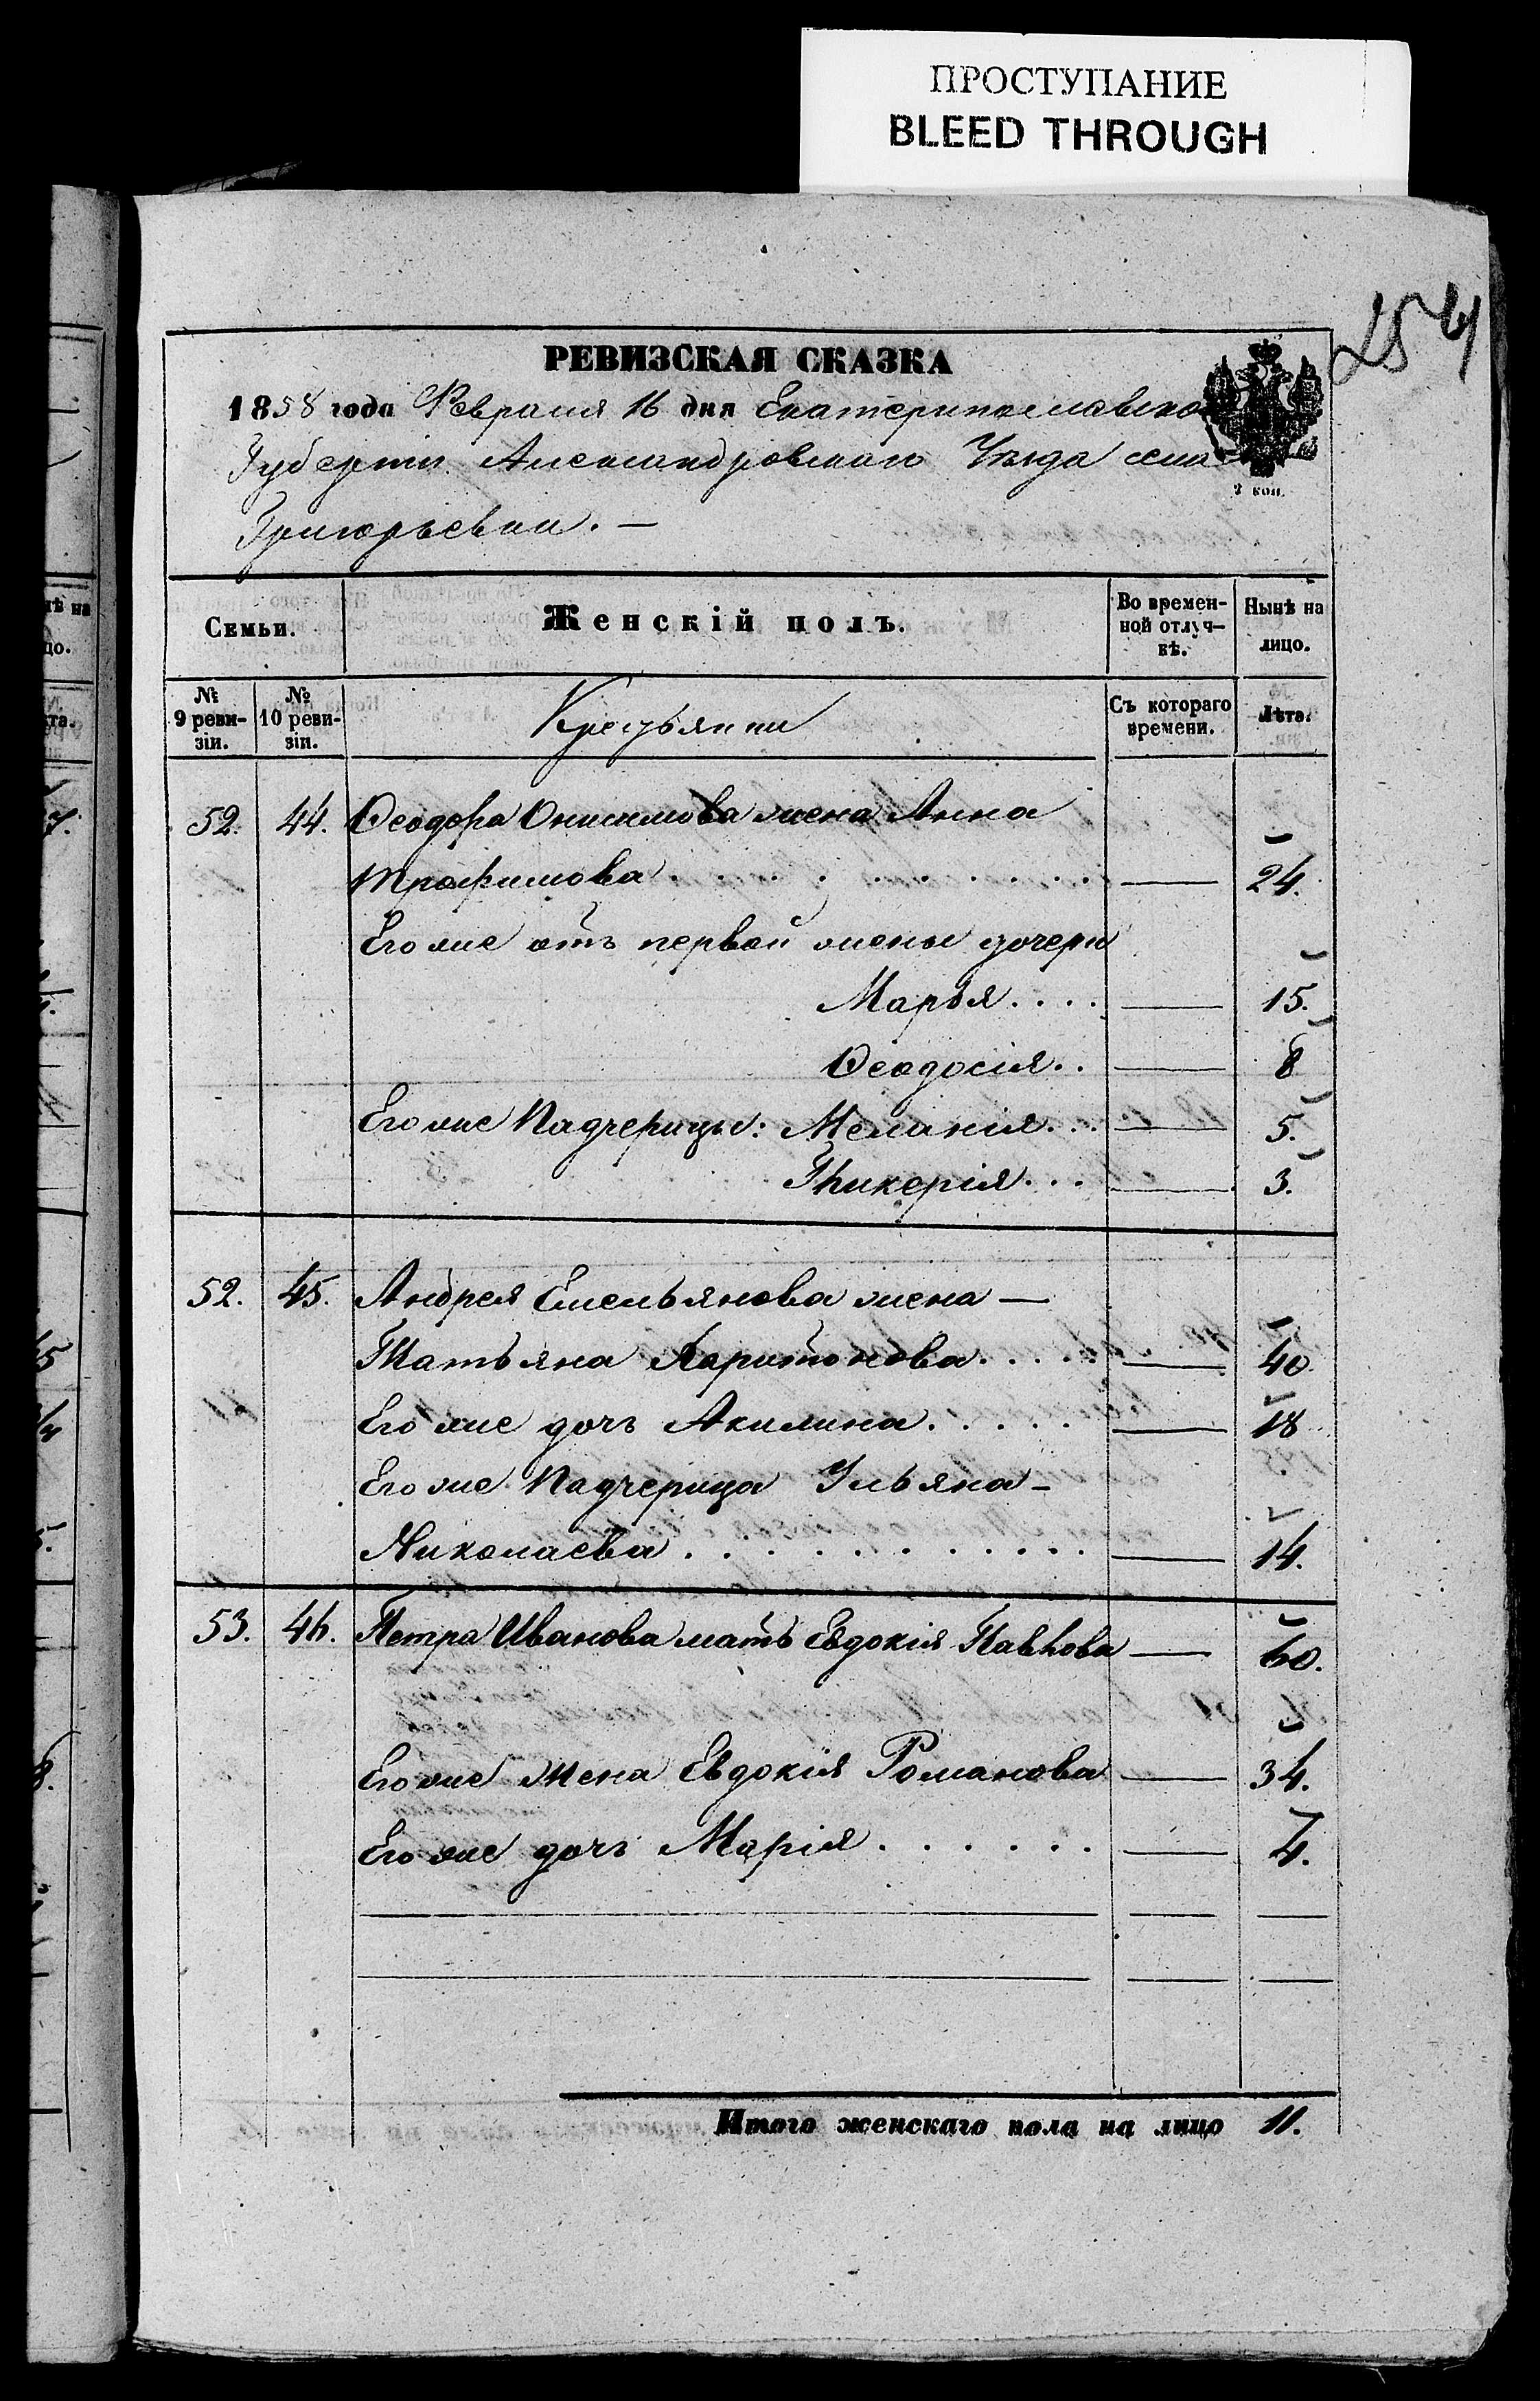 ПРОСТУПАНИЕ
BLEED THROUGH
254
РЕВИЗСКАЯ СКАЗКА
1858 года Февраля 16 дня Екатеринославско
Губерніи Александровскаго Уѣзда села
Григорьевки. —
2 коп.
Семьи.
Женскій полъ.
Во времен-
ной отлуч-
кѣ.
Нынѣ на
лицо.
№ 9 реви-
зіи.
№ 10 реви-
зіи.
Крестьянки
Съ котораго
времени.
Лѣта.
52. 44. Ѳеодора Онисимова жена Анна
Трофимова . . . . . . . . . — 24.
Его же отъ первой жены дочери
Марья . . . . — 15.
Ѳеодосія . . — 8
Его же Падчерицы: Меланія . . . — 5.
Гликерія . . . — 3.
52. 45. Андрея Емельянова жена —
Татьяна Харитонова . . . . — 40.
Его же дочь Акилина . . . . . — 18
Его же Падчерица Ульяна -
Николаева . . . . . . . . . . — 14.
53. 46. Петра Иванова мать Евдокія Павлова — 60.
Его же жена Евдокія Романова — 34.
Его же дочь Марія . . . . . . — 4.
Итого женскаго пола на лицо 11.